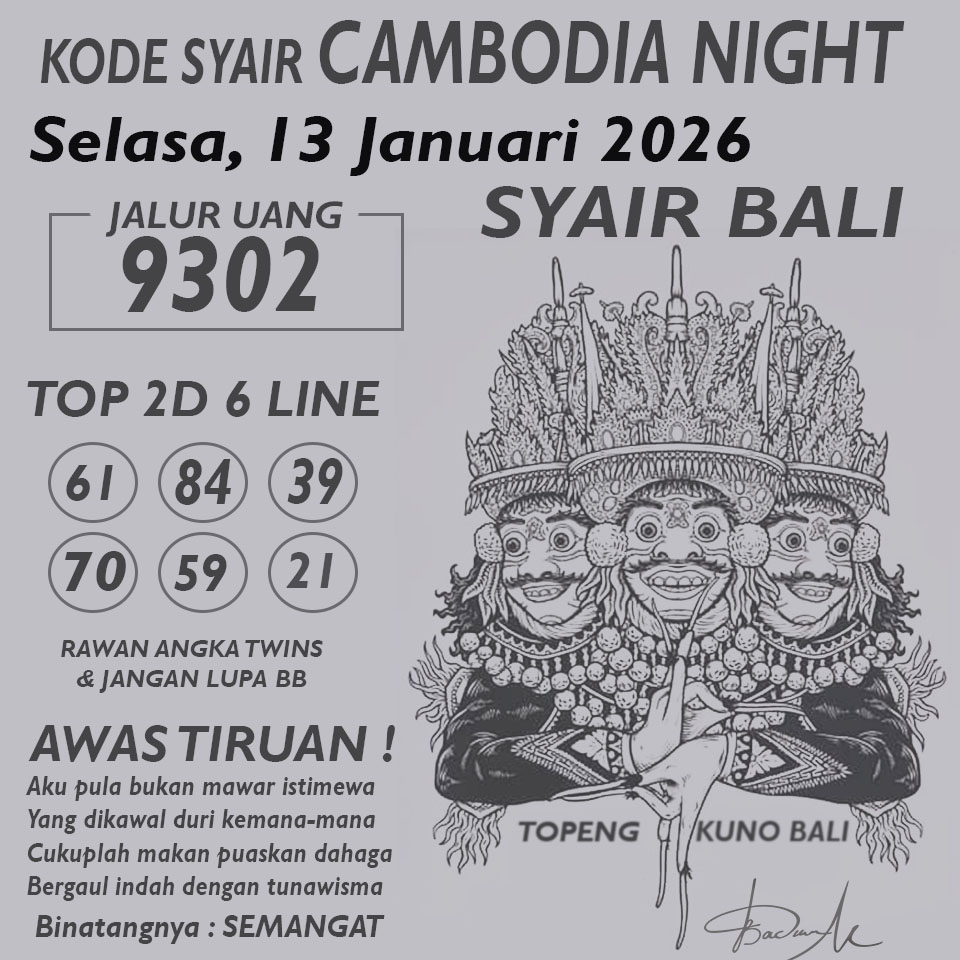 KODE SYAIR CAMBODIA NIGHT
Selasa, 13 Januari 2026
SYAIR BALI
JALUR UANG
9302
TOP 2D 6 LINE
61 84 39
70 59 21
RAWAN ANGKA TWINS
& JANGAN LUPA BB
AWAS TIRUAN !
Aku pula bukan mawar istimewa
Yang dikawal duri kemana-mana
Cukuplah makan puaskan dahaga
Bergaul indah dengan tunawisma
Binatangnya : SEMANGAT
TOPENG KUNO BALI